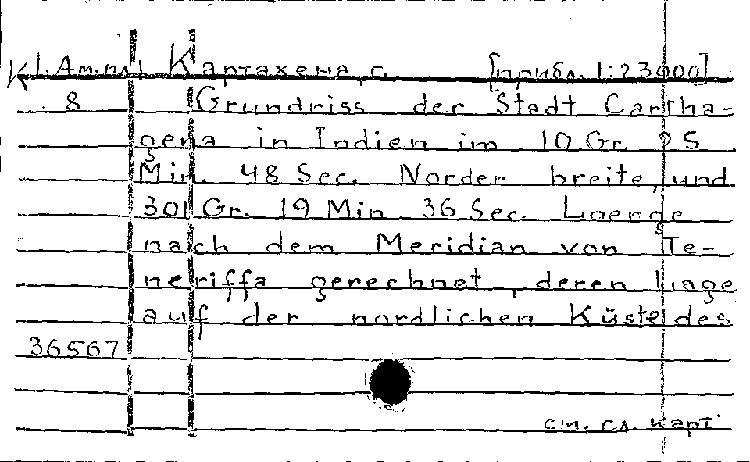 К 1. Ам. пл. Картахена, г. [прибл. 1:23000]
8 Grundriss der Stadt Cartha-
gena in Indien im 10 Gr. 25
Min. 48 Sec. Norder breite, und
301 Gr. 19 Min 36 Sec. Laenge
nach dem Meridian von Te-
neriffa gerechnet, deren Lage
auf der nordlichen Küste des
36567
см. сл. карт.